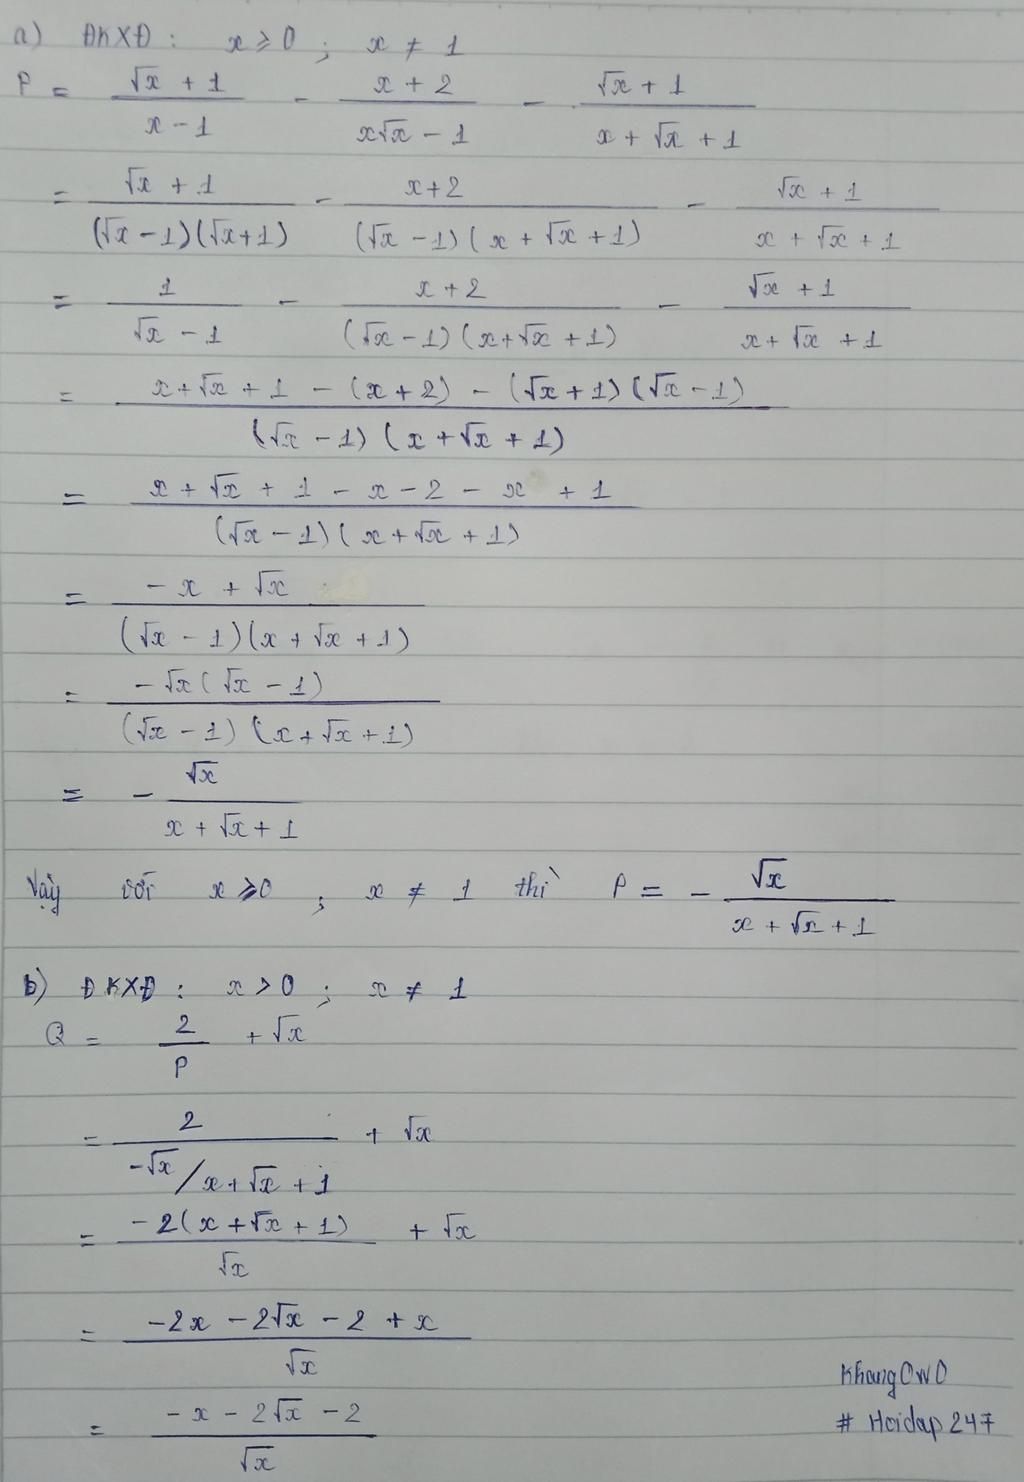 a) ĐKXĐ : x ⩾ 0 ; x ≠ 1
P = (√x + 1)/(x - 1) - (x + 2)/(x√x - 1) - (√x + 1)/(x + √x + 1)
= (√x + 1)/((√x - 1)(√x + 1)) - (x + 2)/((√x - 1)(x + √x + 1)) - (√x + 1)/(x + √x + 1)
= 1/(√x - 1) - (x + 2)/((√x - 1)(x + √x + 1)) - (√x + 1)/(x + √x + 1)
= (x + √x + 1 - (x + 2) - (√x + 1)(√x - 1))/((√x - 1)(x + √x + 1))
= (x + √x + 1 - x - 2 - x + 1)/((√x - 1)(x + √x + 1))
= (-x + √x)/((√x - 1)(x + √x + 1))
= (-√x(√x - 1))/((√x - 1)(x + √x + 1))
= - √x/(x + √x + 1)
Vậy với x ⩾ 0 ; x ≠ 1 thì P = - √x/(x + √x + 1)
b) ĐKXĐ : x > 0 ; x ≠ 1
Q = 2/P + √x
= 2/(-√x/x + √x + 1) + √x
= (-2(x + √x + 1))/√x + √x
= (-2x - 2√x - 2 + x)/√x
= (-x - 2√x - 2)/√x
KhangOwO
# Hoidap247